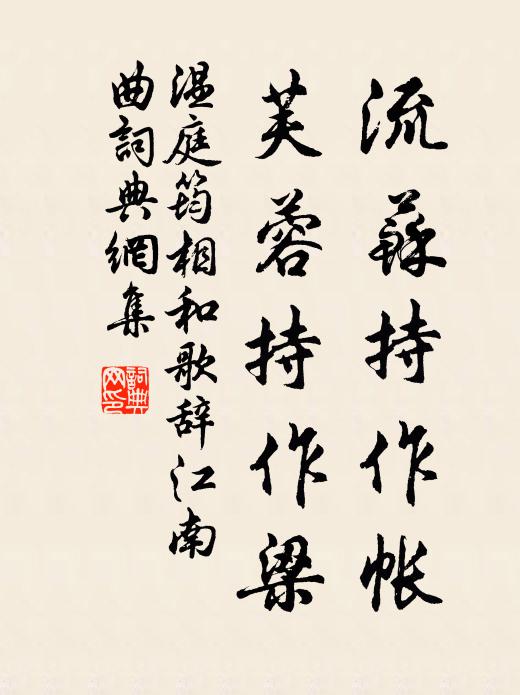 流蘇持作帐
芙蓉持作梁
温庭筠相和歌辞江南
曲詞典網集
詞典网印